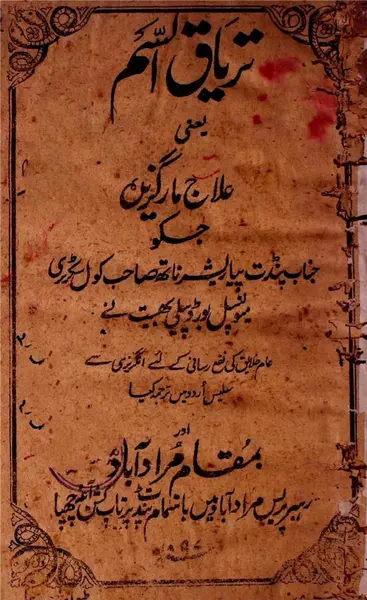 تریاق السّم
یعنی
علاج مارگزیدہ
جسکو
جناب پنڈت پیارلیشر ناتھ صاحب کول سکرٹری
میونسپل بورڈ پیلی بھیت نے
عام خلایق کی نفع رسانی کے لئے انگریزی سے
سلیس اُردو میں ترجمہ کیا
اور
بمقام مُرادآباد
رہبر پریس مرادآباد میں باہتمام پنڈت پرتاپ کشن آغہ چھپا